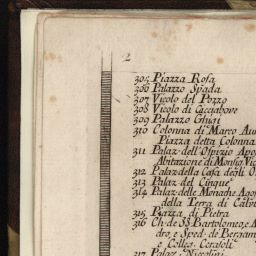 2
305 Piazza Rosa
306 Palazzo Spada
307 Vicolo del Pozzo
308 Vicolo di Cacciabove
309 Palazzo Ghigi
310 Colonna di Marco Au
Piazza detta Colonna
311 Palaz. dell'Ospizio Apo
Abitazione di Monsig. Vic
312 Palaz. della Casa degli O
313 Palaz. del Cinque
314 Palaz. delle Monache Agos
della Terra di
315 Piazza di Pietra
316 Ch. de SS. Bartolomeo, e A
dro, e Sped. de Bergam
e Colleg. Cerasoli
317 Palaz. Niccolini